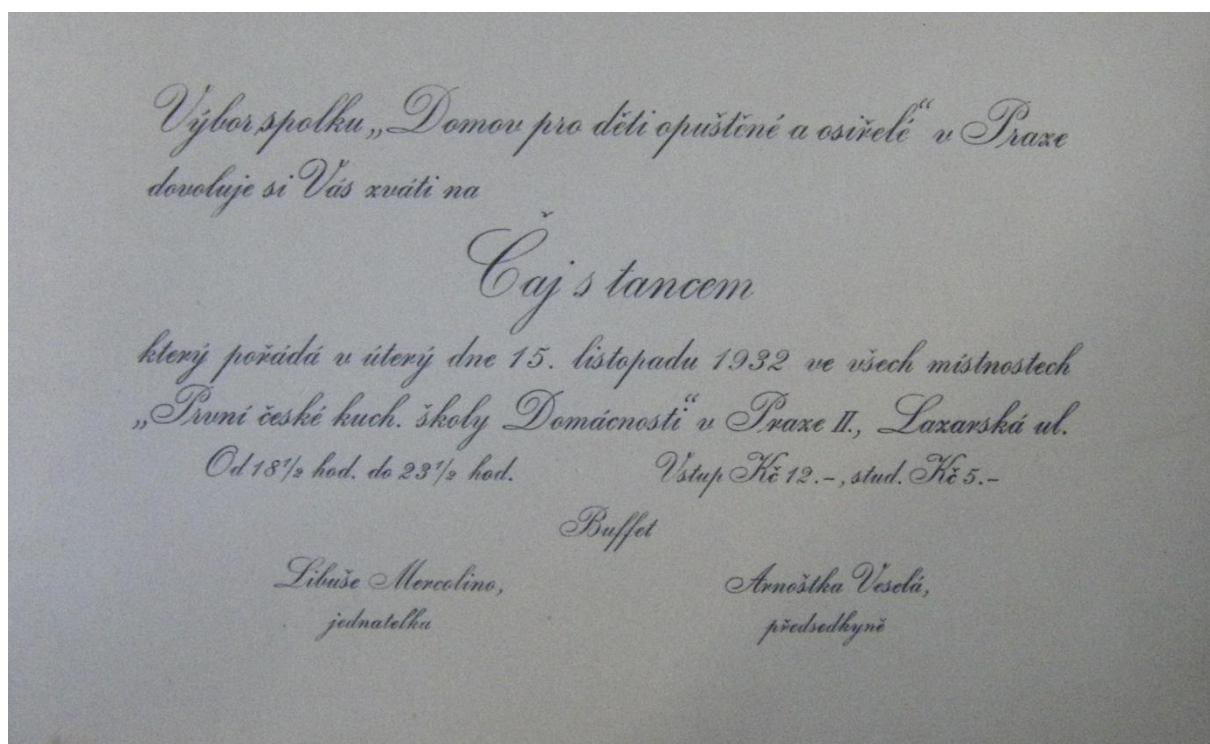 Výbor spolku „Domov pro děti opuštěné a osiřelé“ v Praze
dovoluje si Vás zváti na
Čaj s tancem
který pořádá v úterý dne 15. listopadu 1932 ve všech místnostech
„První české kuch. školy Domácnosti“ v Praze II., Lazarská ul.
Od 18 1/2 hod. do 23 1/2 hod. Vstup Kč 12.–, stud. Kč 5.–
Buffet
Libuše Mercolino, Arnoštka Veselá,
jednatelka předsedkyně